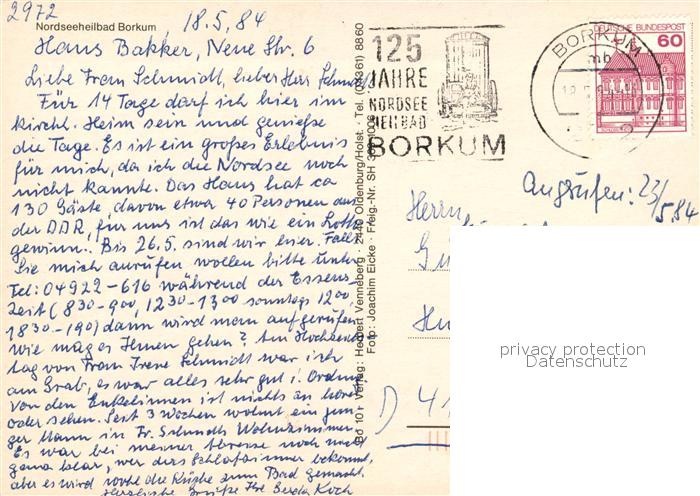 2972
Nordseeheilbad Borkum
18.5.84
Hans Bakker, Neue Str. 6
Liebe Frau Schmidt, lieber Herr Schmidt
Für 14 Tage darf ich hier im
kirchl. Heim sein und genieße
die Tage. Es ist ein großes Erlebnis
für mich, da ich die Nordsee noch
nicht kannte. Das Haus hat ca
130 Gäste, davon etwa 40 Personen aus
der DDR, für uns ist das wie ein Lotto
gewinn. Bis 26.5. sind wir hier. Falls
Sie mich anrufen wollen bitte unter
Tel: 04922-616 während der Essens-
Zeit (830-900, 1230-1300 sonntags 1200,
1830-190) dann wird man aufgerufen
Wie mag es Ihnen gehen? Am Hochzeits
tag von Frau Irene Schmidt war ich
am Grab, es war alles sehr gut i. Ordnu.
Von den Enkelinnen ist nichts zu hören
oder sehen. Seit 3 Wochen wohnt ein jun
ger Mann in Fr. Schmidts Wohnzimmer
Es war bei meiner Abreise noch nicht
genau klar, wer das Schlafzimmer bekommt,
aber es wird wohl die Küche zum Bad gemacht.
Herzliche Grüße Ihre Gerda Koch
Bo 10 r Verlag: Herbert Venneberg · 2440 Oldenburg/Holst. · Tel. (04361) 8860
Foto: Joachim Eicke · Freig.-Nr. SH
125
JAHRE
NORDSEE
HEILBAD
BORKUM
BORKUM
mb
DEUTSCHE BUNDESPOST
60
Angerufen: 23/5.84
Herrn
D 41
privacy protection
Datenschutz